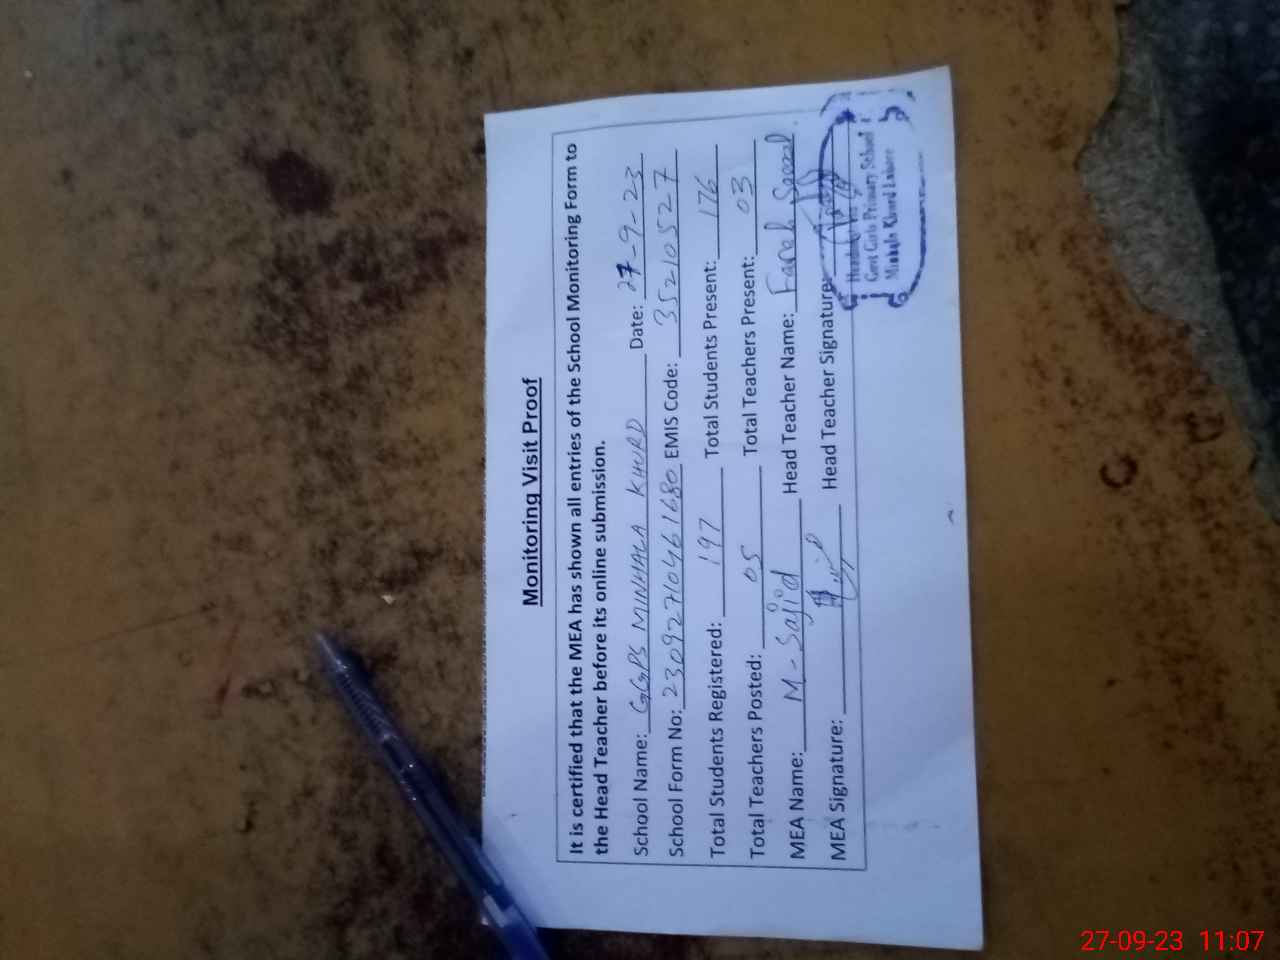 Monitoring Visit Proof
It is certified that the MEA has shown all entries of the School Monitoring Form to
the Head Teacher before its online submission.
School Name: GGPS MINHALA KHURD Date: 27-9-23
School Form No: 230927104461680 EMIS Code: 35210527
Total Students Registered: 197 Total Students Present: 176
Total Teachers Posted: 05 Total Teachers Present: 03
MEA Name: M-Sajid Head Teacher Name: Farah
MEA Signature: Head Teacher Signature:
Govt Girls Primary School
Minhala Khurd Lahore
27-09-23 11:07